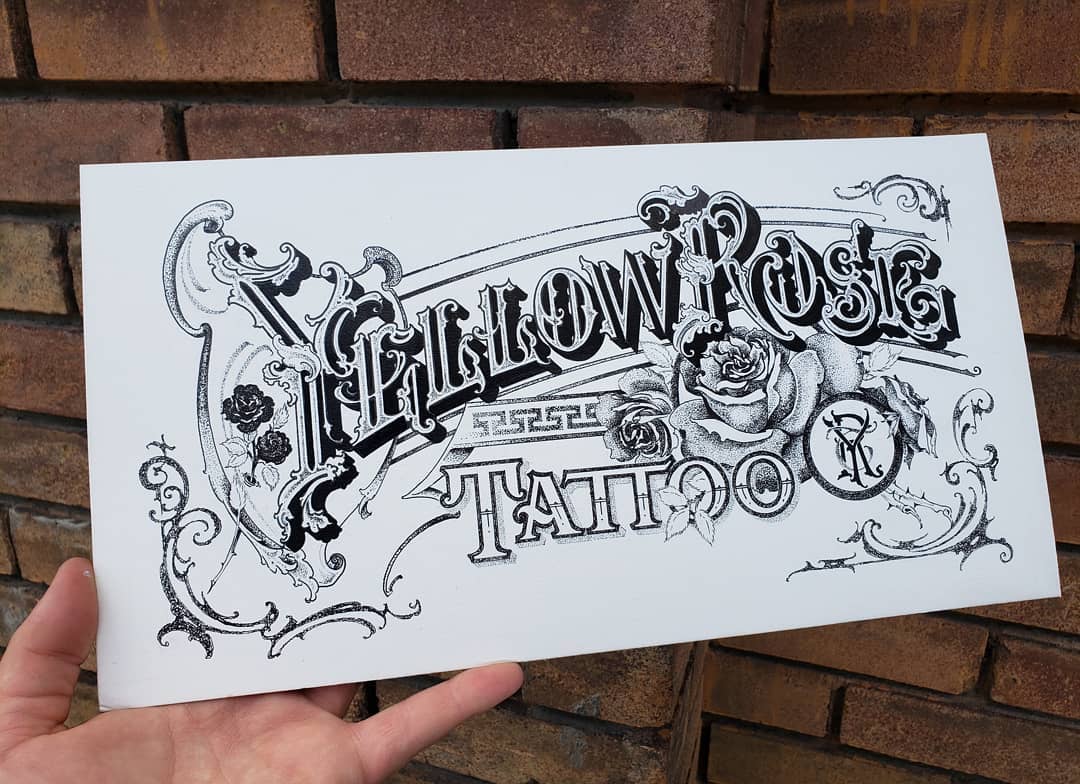 YELLOW ROSE
TATTOO
YR